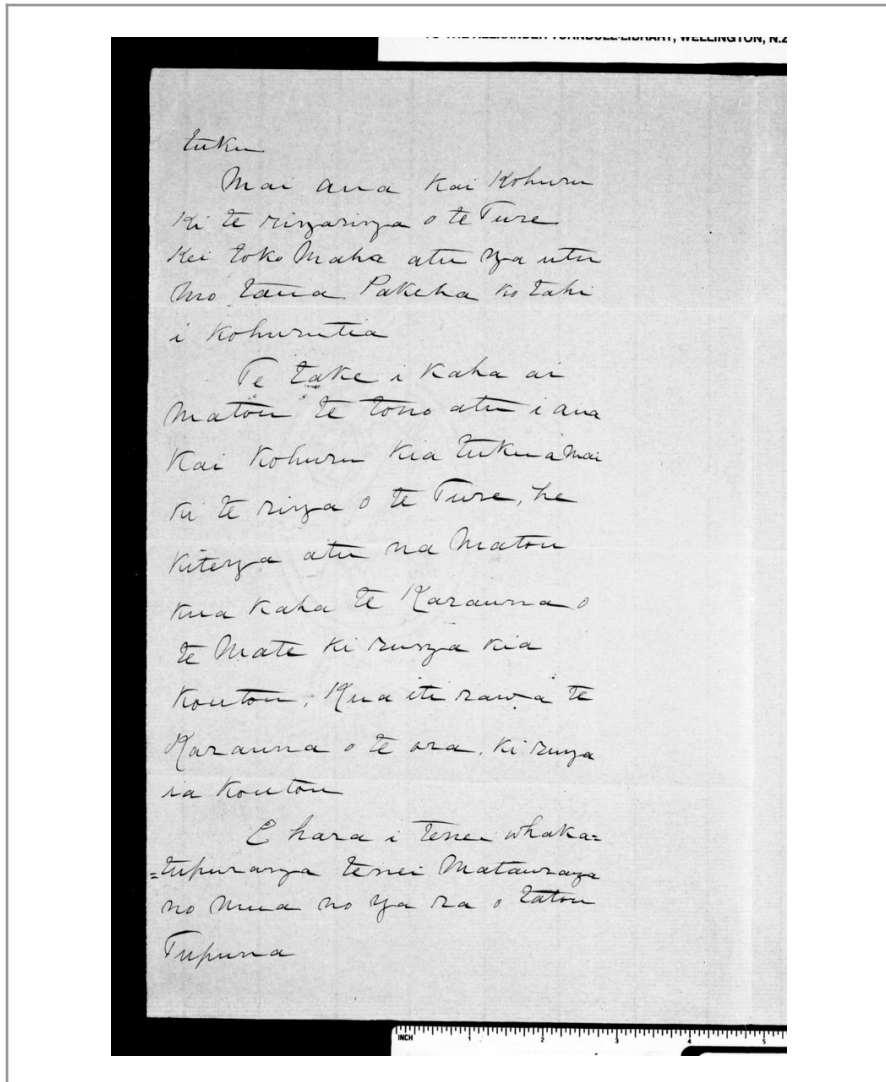 TO THE ALEXANDER TURNBULL LIBRARY, WELLINGTON, N.Z
tuku
Mai ana Kai Kohuru
Ki te ringaringa o te Ture
Kei toko Maha atu nga utu
Mo tana Pakeha ko tahi
i Kohurutia
Te take i Kaha ai
Matou te tono atu i ana
Kai Kohuru Kia tukua Mai
ki te ringa o te Ture, he
Kitenga atu na Matou
Kua Kaha te Karauna o
te Mate ki runga kia
Koutou, Kua iti rawa te
Karauna o te ora, ki runga
ia Koutou
E hara i tenei whaka=
=tupuranga tenei Matauranga
no mua no nga ra o tatou
Tupuna
INCH 1 2 3 4 5